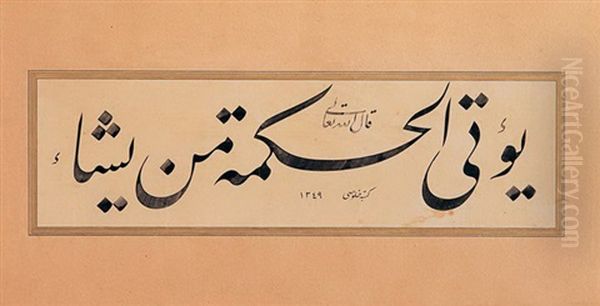 قال الله تعالى
يؤتى الحكمة من يشاء
كتبه خلوصي ١٣٤٩
NiceArtGallery.com